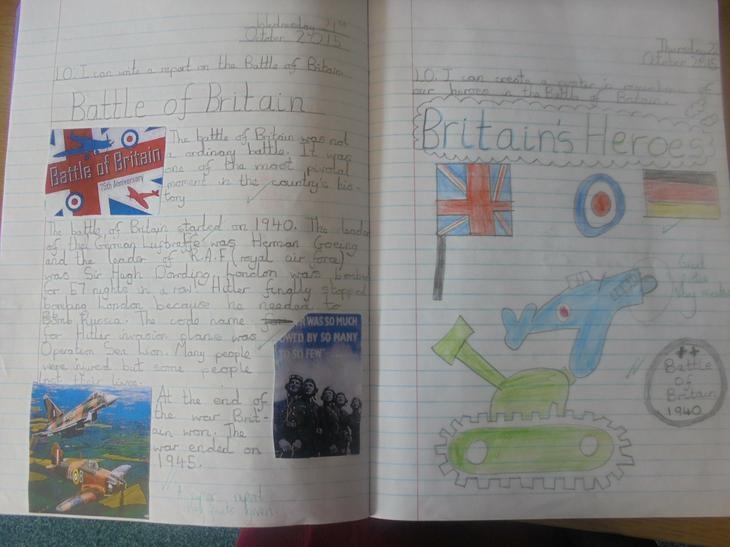 Wednesday 21st
October 2015
LO. I can write a report on the Battle of Britain
Battle of Britain
Battle of Britain
75th Anniversary
The battle of Britain was not
a ordinary battle. It was
one of the most pivotal
moment in the country's his-
tory
The battle of Britain started on 1940. The leader
of the German Luftwaffe was Herman Goeing
and the leader of R.A.F (royal air force)
was Sir Hugh Dowding. London was bombed
for 57 nights in a row. Hitler finally stopped
bombing London because he needed to
Bomb Russia. The code name
for Hitler invasion plans was
Operation Sea Lion. Many people
were injured but some people
lost their lives.
WAS SO MUCH
OWED BY SO MANY
TO SO FEW
At the end of
the war Brit-
ain won. The
war ended on
1945.
Thursday
October 2015
LO. I can create a poster in
our heroes in the Battle of Britain.
Britain's Heroes
Battle
Of
Britain
1940